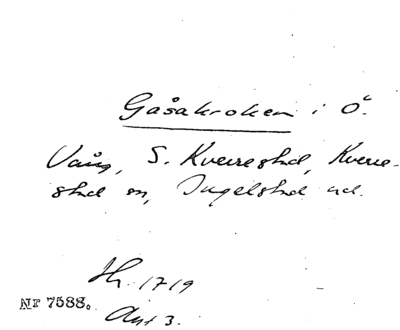 Gåsakroken i Ö.
Vång, S. Kverrestad, Kverre-
stad sn, Ingelstad hd.
Hh. 1719
Akt 3.
Nr 7588.